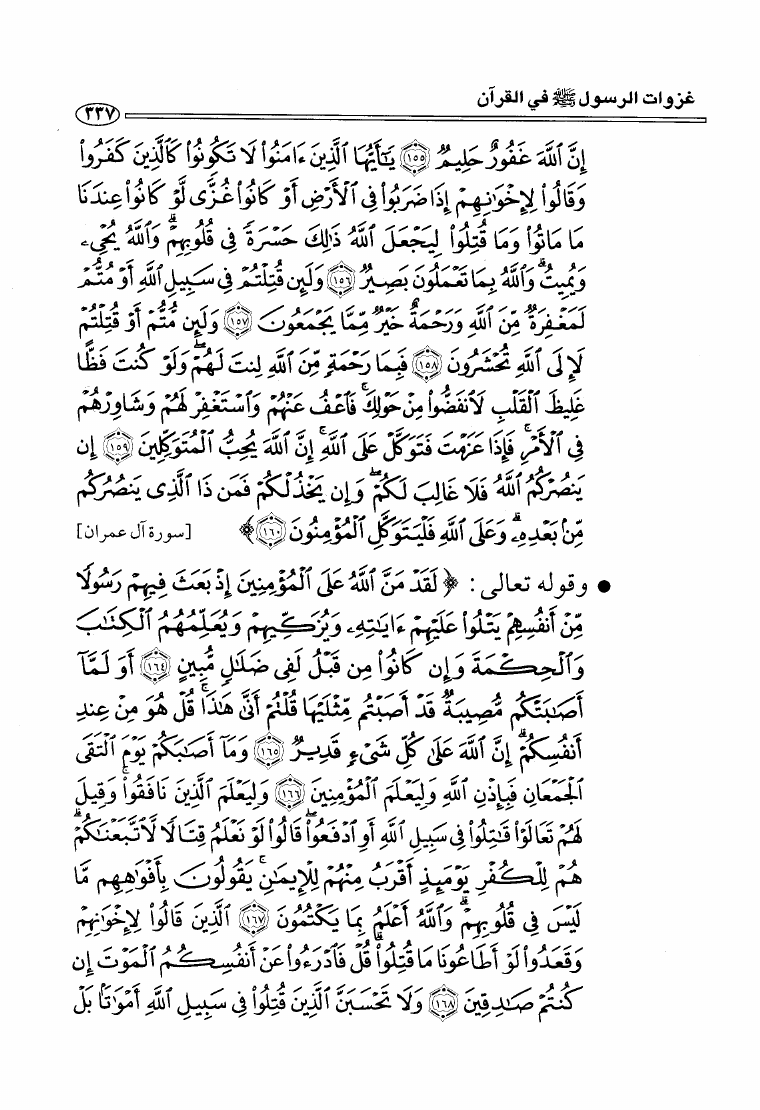 غزوات الرسول ﷺ في القرآن
٣٣٧
إِنَّ ٱللَّهَ غَفُورٌ حَلِيمٌ ١٥٥ يَٰٓأَيُّهَا ٱلَّذِينَ ءَامَنُوا۟ لَا تَكُونُوا۟ كَٱلَّذِينَ كَفَرُوا۟
وَقَالُوا۟ لِإِخْوَٰنِهِمْ إِذَا ضَرَبُوا۟ فِى ٱلْأَرْضِ أَوْ كَانُوا۟ غُزًّى لَّوْ كَانُوا۟ عِندَنَا
مَا مَاتُوا۟ وَمَا قُتِلُوا۟ لِيَجْعَلَ ٱللَّهُ ذَٰلِكَ حَسْرَةً فِى قُلُوبِهِمْ ۗ وَٱللَّهُ يُحْىِۦ
وَيُمِيتُ ۗ وَٱللَّهُ بِمَا تَعْمَلُونَ بَصِيرٌ ١٥٦ وَلَئِن قُتِلْتُمْ فِى سَبِيلِ ٱللَّهِ أَوْ مُتُّمْ
لَمَغْفِرَةٌ مِّنَ ٱللَّهِ وَرَحْمَةٌ خَيْرٌ مِّمَّا يَجْمَعُونَ ١٥٧ وَلَئِن مُّتُّمْ أَوْ قُتِلْتُمْ
لَإِلَى ٱللَّهِ تُحْشَرُونَ ١٥٨ فَبِمَا رَحْمَةٍ مِّنَ ٱللَّهِ لِنتَ لَهُمْ ۖ وَلَوْ كُنتَ فَظًّا
غَلِيظَ ٱلْقَلْبِ لَٱنفَضُّوا۟ مِنْ حَوْلِكَ ۖ فَٱعْفُ عَنْهُمْ وَٱسْتَغْفِرْ لَهُمْ وَشَاوِرْهُمْ
فِى ٱلْأَمْرِ ۖ فَإِذَا عَزَمْتَ فَتَوَكَّلْ عَلَى ٱللَّهِ ۚ إِنَّ ٱللَّهَ يُحِبُّ ٱلْمُتَوَكِّلِينَ ١٥٩ إِن
يَنصُرْكُمُ ٱللَّهُ فَلَا غَالِبَ لَكُمْ ۖ وَإِن يَخْذُلْكُمْ فَمَن ذَا ٱلَّذِى يَنصُرُكُم
مِّنۢ بَعْدِهِۦ ۗ وَعَلَى ٱللَّهِ فَلْيَتَوَكَّلِ ٱلْمُؤْمِنُونَ ١٦٠ ﴾ [سورة آل عمران]
• وقوله تعالى: ﴿ لَقَدْ مَنَّ ٱللَّهُ عَلَى ٱلْمُؤْمِنِينَ إِذْ بَعَثَ فِيهِمْ رَسُولًا
مِّنْ أَنفُسِهِمْ يَتْلُوا۟ عَلَيْهِمْ ءَايَٰتِهِۦ وَيُزَكِّيهِمْ وَيُعَلِّمُهُمُ ٱلْكِتَٰبَ
وَٱلْحِكْمَةَ وَإِن كَانُوا۟ مِن قَبْلُ لَفِى ضَلَٰلٍ مُّبِينٍ ١٦٤ أَوَلَمَّآ
أَصَٰبَتْكُم مُّصِيبَةٌ قَدْ أَصَبْتُم مِّثْلَيْهَا قُلْتُمْ أَنَّىٰ هَٰذَا ۖ قُلْ هُوَ مِنْ عِندِ
أَنفُسِكُمْ ۗ إِنَّ ٱللَّهَ عَلَىٰ كُلِّ شَىْءٍ قَدِيرٌ ١٦٥ وَمَآ أَصَٰبَكُمْ يَوْمَ ٱلْتَقَى
ٱلْجَمْعَانِ فَبِإِذْنِ ٱللَّهِ وَلِيَعْلَمَ ٱلْمُؤْمِنِينَ ١٦٦ وَلِيَعْلَمَ ٱلَّذِينَ نَافَقُوا۟ ۚ وَقِيلَ
لَهُمْ تَعَالَوْا۟ قَٰتِلُوا۟ فِى سَبِيلِ ٱللَّهِ أَوِ ٱدْفَعُوا۟ ۖ قَالُوا۟ لَوْ نَعْلَمُ قِتَالًا لَّٱتَّبَعْنَٰكُمْ ۗ
هُمْ لِلْكُفْرِ يَوْمَئِذٍ أَقْرَبُ مِنْهُمْ لِلْإِيمَٰنِ ۚ يَقُولُونَ بِأَفْوَٰهِهِم مَّا
لَيْسَ فِى قُلُوبِهِمْ ۗ وَٱللَّهُ أَعْلَمُ بِمَا يَكْتُمُونَ ١٦٧ ٱلَّذِينَ قَالُوا۟ لِإِخْوَٰنِهِمْ
وَقَعَدُوا۟ لَوْ أَطَاعُونَا مَا قُتِلُوا۟ ۗ قُلْ فَٱدْرَءُوا۟ عَنْ أَنفُسِكُمُ ٱلْمَوْتَ إِن
كُنتُمْ صَٰدِقِينَ ١٦٨ وَلَا تَحْسَبَنَّ ٱلَّذِينَ قُتِلُوا۟ فِى سَبِيلِ ٱللَّهِ أَمْوَٰتًۢا ۚ بَلْ